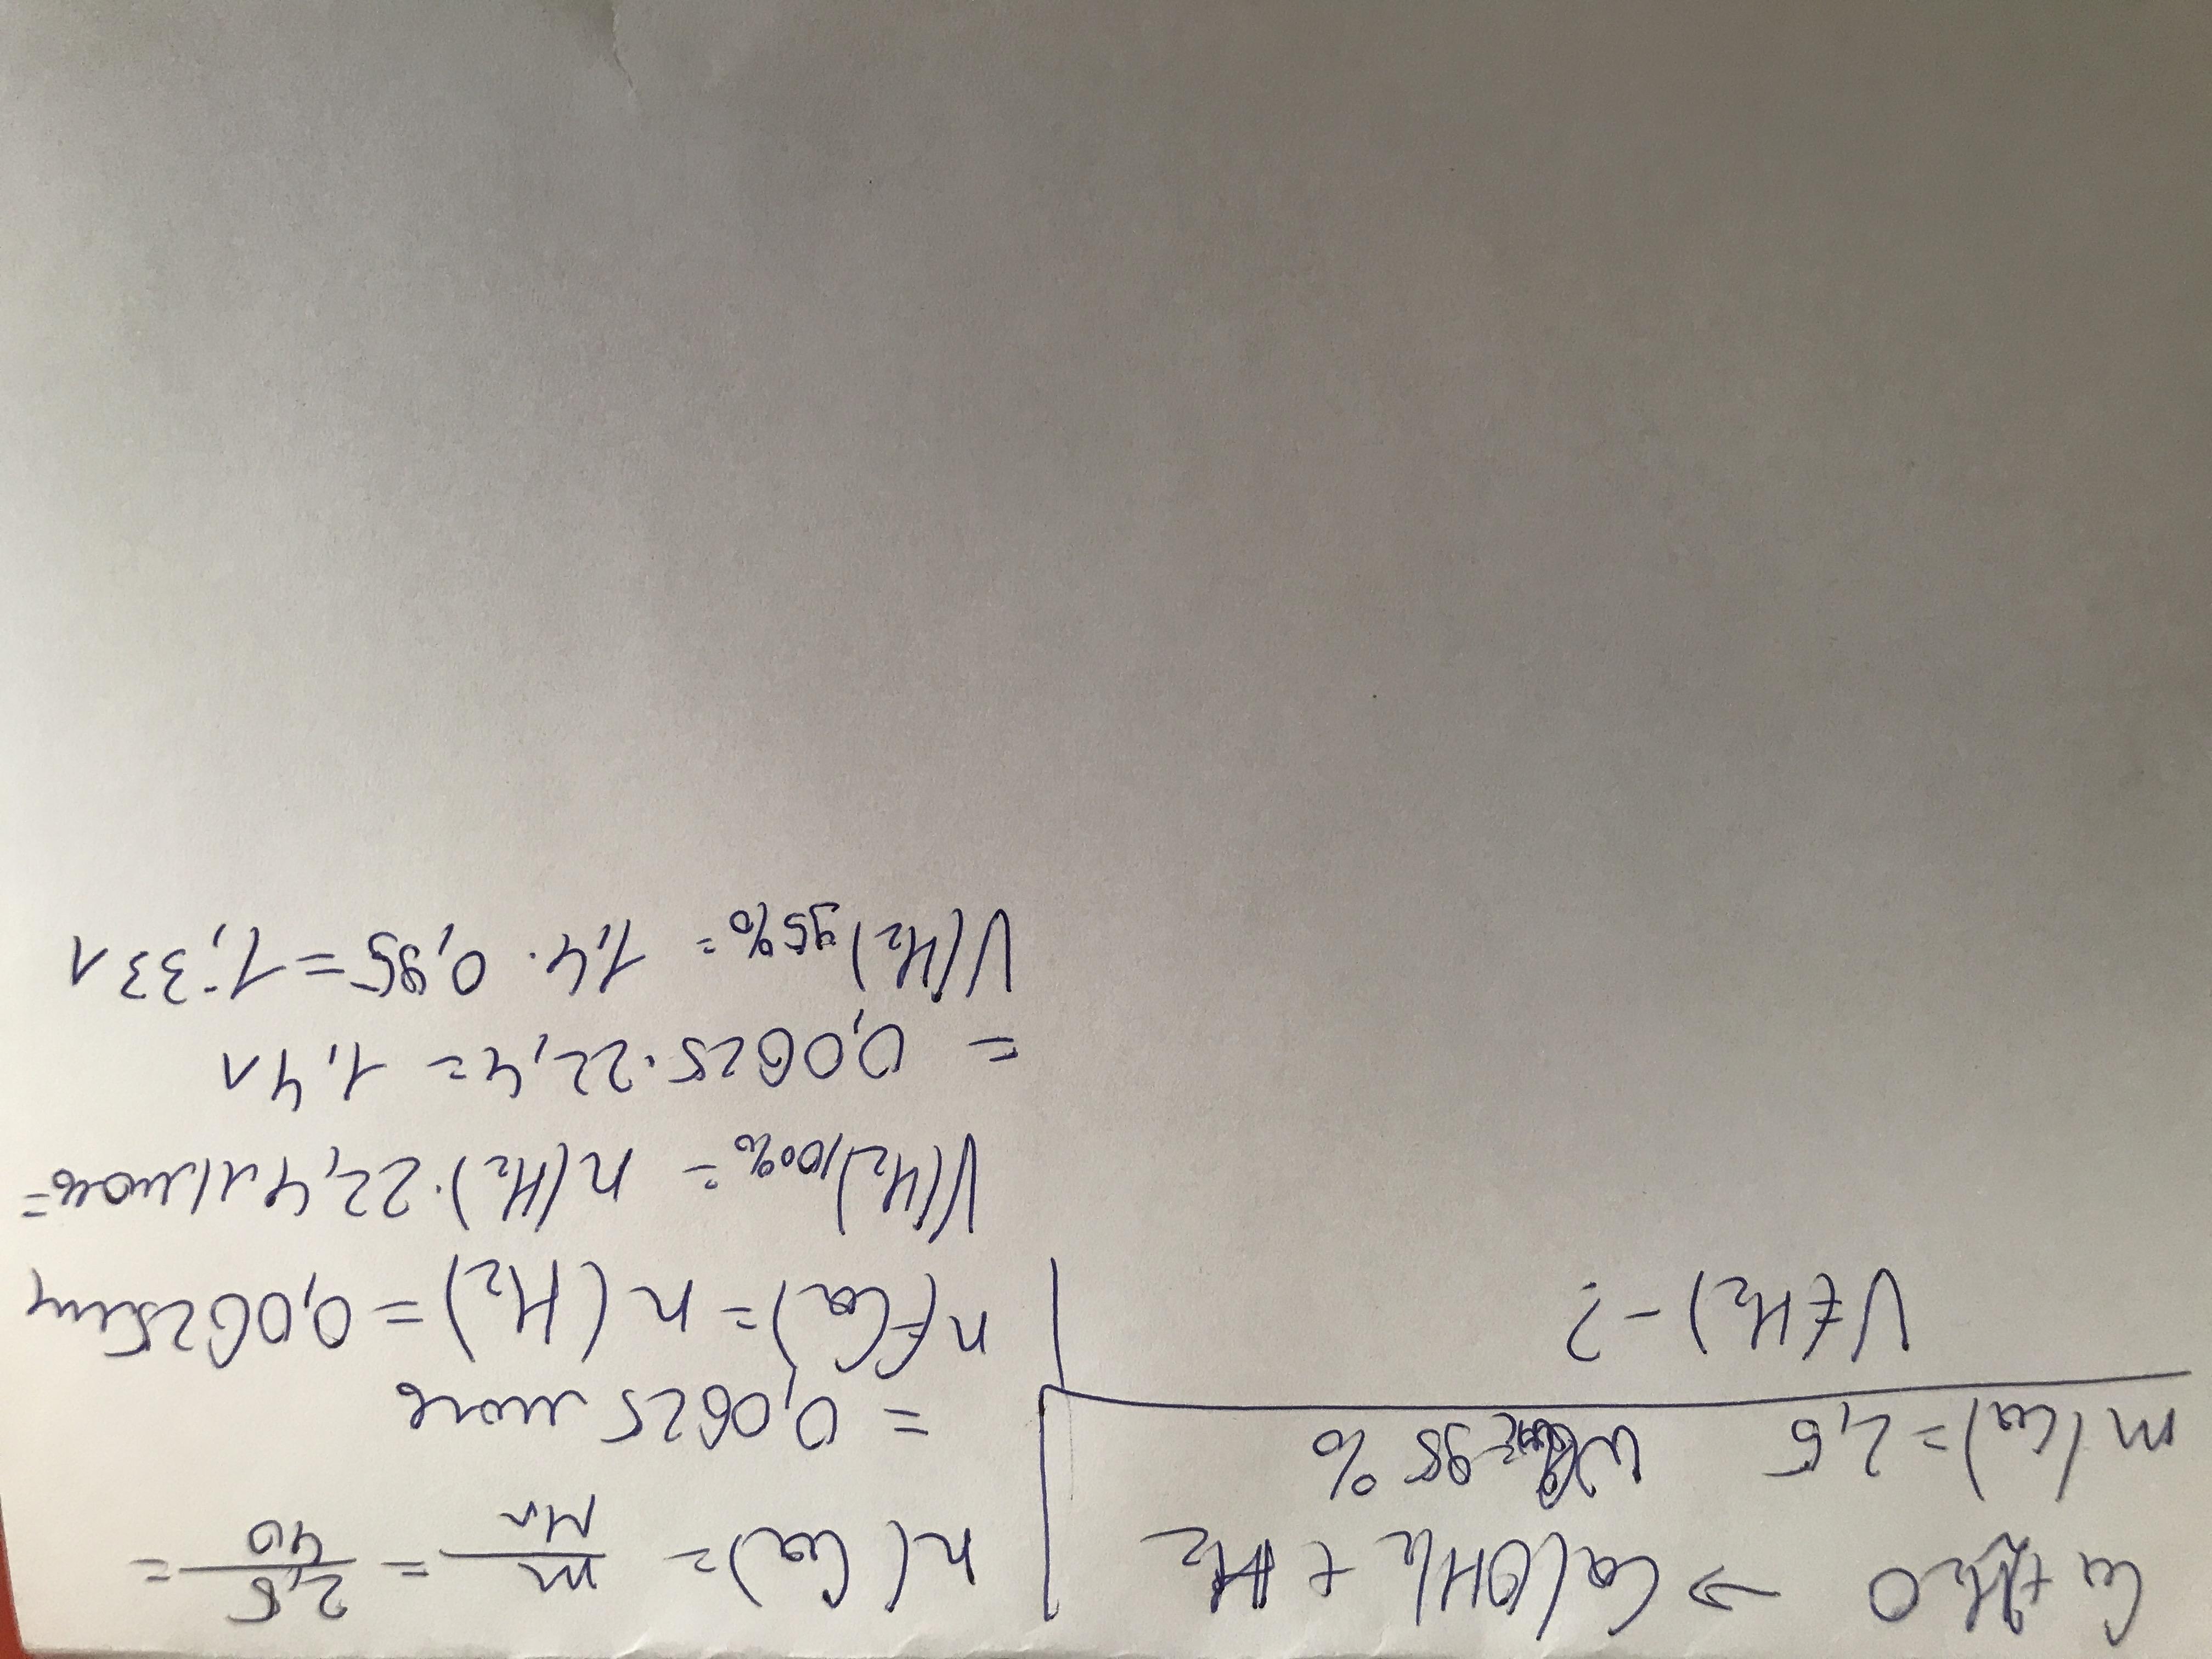 Ca + H₂O → Ca(OH)₂ + H₂
m(Ca) = 2,5 95 %
V(H₂) - ?
n(Ca) = m/Mr = 2,5/40 =
= 0,0625 моль
n(Ca) = n(H₂) = 0,0625
V(H₂)100% = n(H₂) · 22,4 л/моль =
= 0,0625 · 22,4 = 1,4 л
V(H₂)95% = 1,4 · 0,95 = 1,33 л